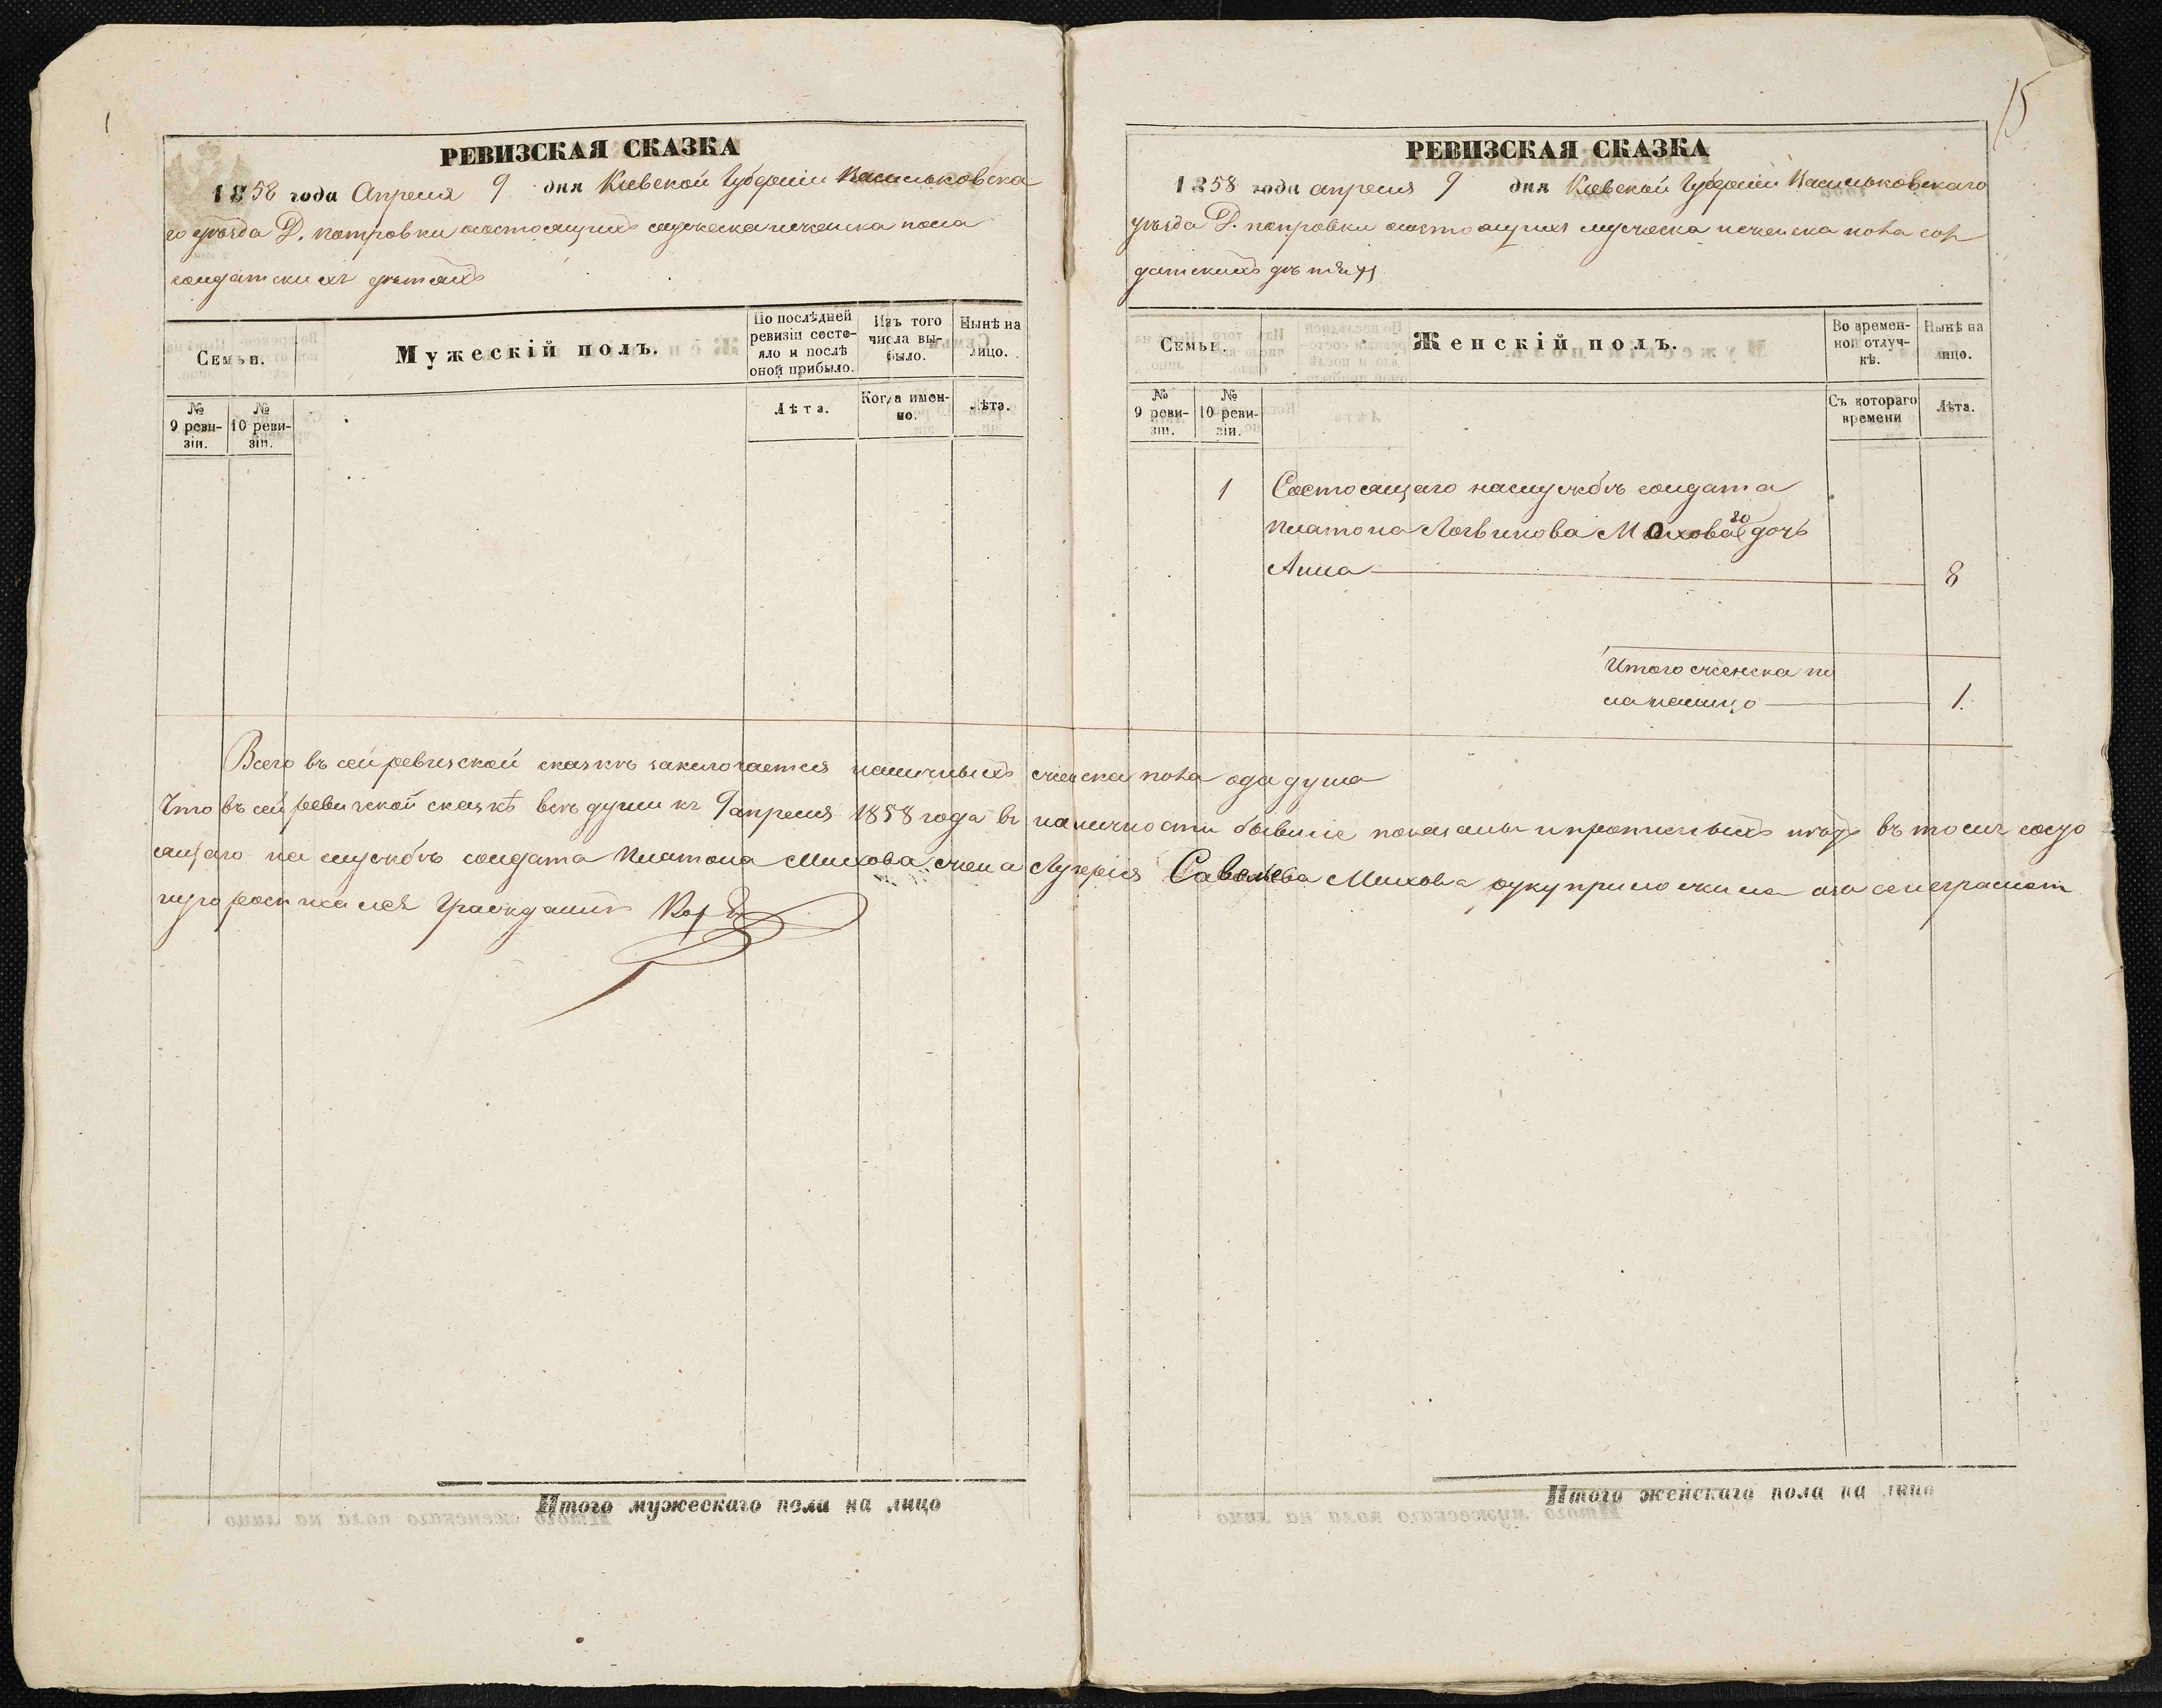 РЕВИЗСКАЯ СКАЗКА
1858 года Апреля 9 дня Киевской Губернии Васильковска
го уѣзда Д. петровки состоящихъ мужеска и женска пола
солдатскихъ дѣтяхъ
Семьи.
Мужескій полъ.
По послѣдней ревизіи состояло и послѣ оной прибыло.
Изъ того числа выбыло.
Нынѣ на лицо.
№ 9 ревизіи.
№ 10 ревизіи.
Лѣта.
Когда именно.
Лѣта.
Итого мужескаго пола на лицо
15
РЕВИЗСКАЯ СКАЗКА
1858 года апреля 9 дня Киевской Губернии Васильковскаго
уѣзда Д. петровки состоящихъ мужеска и женска пола сол
датскихъ дѣтяхъ
Семьи.
Женскій полъ.
Во временной отлучкѣ.
Нынѣ на лицо.
№ 9 ревизіи.
№ 10 ревизіи.
Съ котораго времени
Лѣта.
1 Состоящаго наслужбѣ солдата
Платона Логвинова дочь
Анна 8
Итого женска по
ла налицо 1.
Всего въ сей ревизской сказкѣ заключается наличныхъ женска пола одна душа
Что въ сей ревизской сказкѣ всѣ души къ 9 апреля 1858 года въ наличности бывшіе показаны и прописныхъ нѣтъ въ томъ состо
ящаго на службѣ солдата Платона Михова жена Лукерія Савельева Михова руку приложила а за неграмот
ную росписался Гражданинъ
Итого женскаго пола на лицо